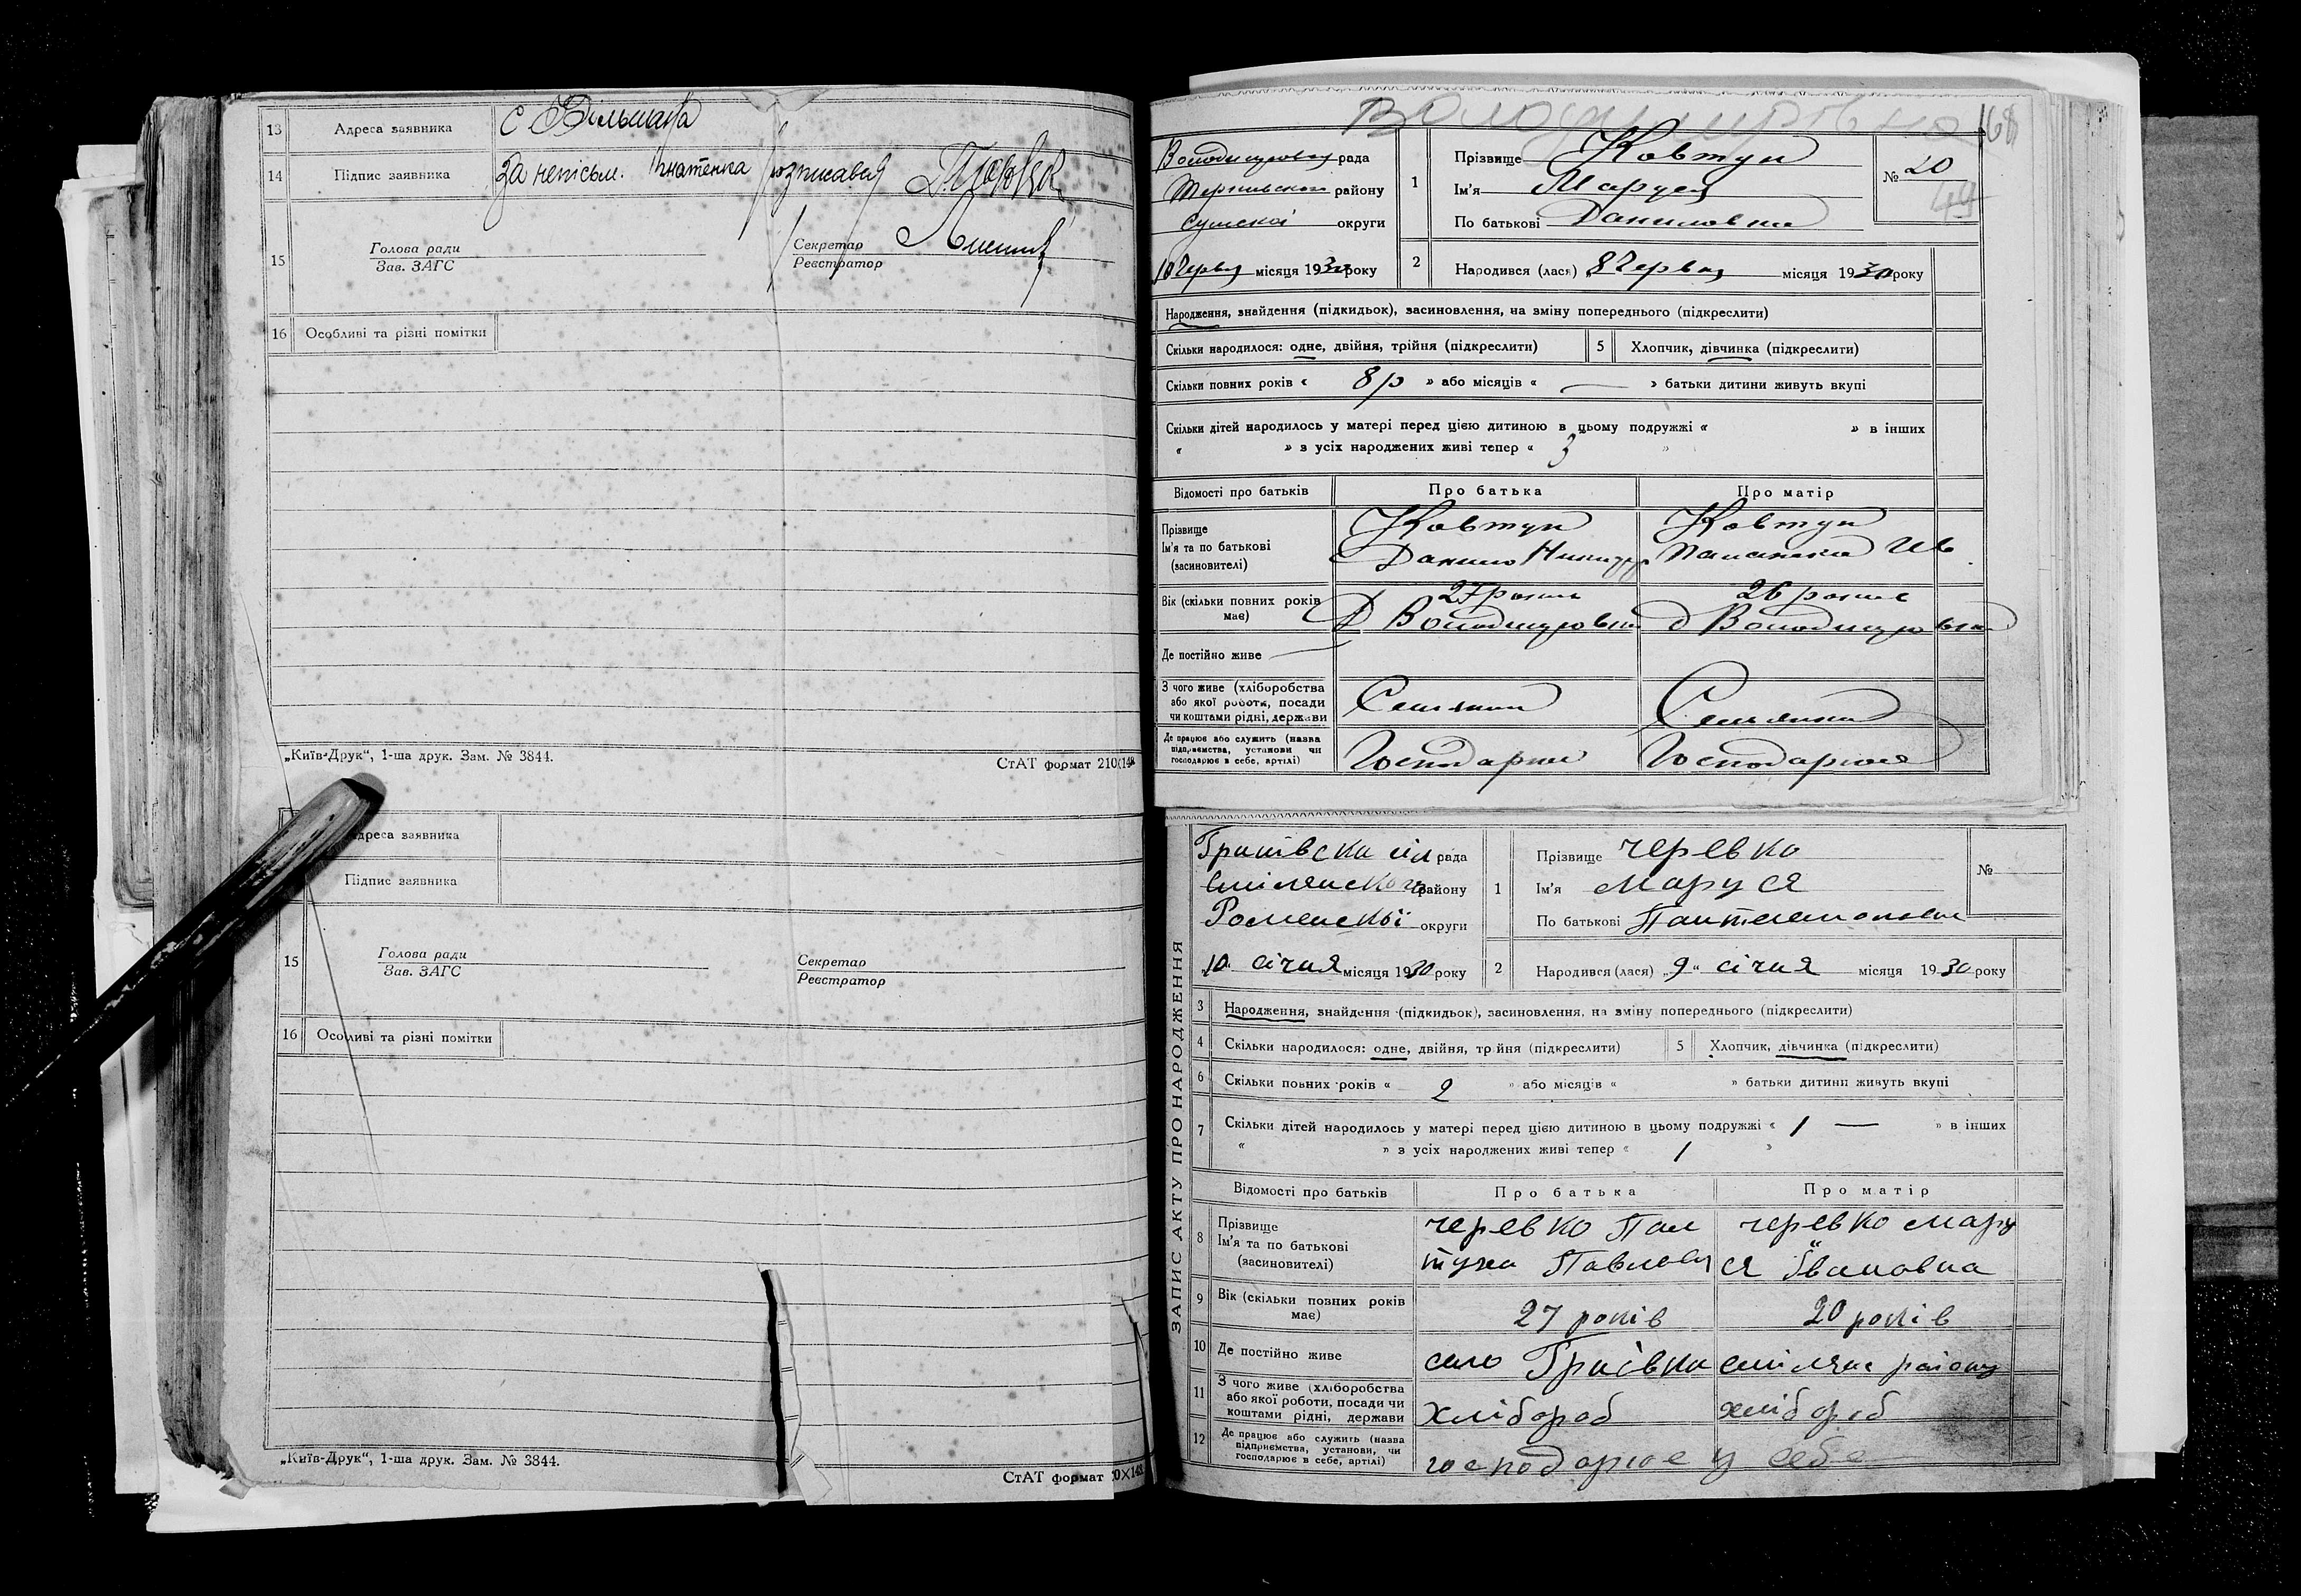 13 Адреса заявника с Вільшана
14 Підпис заявника За непісьм. Ігнатенка розписався
15 Голова ради
Зав. ЗАГС
Секретар
Реєстратор
16 Особливі та різні помітки
„Київ-Друк“, 1-ша друк. Зам. № 3844.
СтАТ формат 210×148
Адреса заявника
Підпис заявника
15 Голова ради
Зав. ЗАГС
Секретар
Реєстратор
16 Особливі та різні помітки
„Київ-Друк“, 1-ша друк. Зам. № 3844.
СтАТ формат
Володимирівка 168
рада
району
Сумскої округи
10 Червня місяця 1930 року
1 Прізвище Ковтун
Ім'я Маруся
По батькові Даниловна
№ 20
44
2 Народився (лася) „8 Червня місяця 1930 року
Народження, знайдення (підкидьок), засиновлення, на зміну попереднього (підкреслити)
Скільки народилося: одне, двійня, трійня (підкреслити) 5 Хлопчик, дівчинка (підкреслити)
Скільки повних років « 8 р » або місяців « — » батьки дитини живуть вкупі
Скільки дітей народилось у матері перед цією дитиною в цьому подружжі « » в інших
« » з усіх народжених живі тепер « 3 »
Відомості про батьків Про батька Про матір
Прізвище Ковтун Ковтун
Ім'я та по батькові Данило
(засиновителі)
Вік (скільки повних років має) 27 26
Де постійно живе
З чого живе (хліборобства
або якої роботи, посади
чи коштами рідні, держави
Де працює або служить (назва
підприємства, установи чи
господарює в себе, артілі)
ЗАПИС АКТУ ПРО НАРОДЖЕННЯ
рада
району
Роменської округи
„10“ січня місяця 1930 року
1 Прізвище Черевко
Ім'я Маруся
По батькові
№
2 Народився (лася) „9“ січня місяця 1930 року
3 Народження, знайдення (підкидьок), засиновлення, на зміну попереднього (підкреслити)
4 Скільки народилося: одне, двійня, трійня (підкреслити) 5 Хлопчик, дівчинка (підкреслити)
6 Скільки повних років « 2 » або місяців « » батьки дитини живуть вкупі
7 Скільки дітей народилось у матері перед цією дитиною в цьому подружжі « 1 — » в інших
« » з усіх народжених живі тепер « 1 »
Відомості про батьків Про батька Про матір
8 Прізвище черевко черевко Мару
Ім'я та по батькові ся Івановна
(засиновителі)
9 Вік (скільки повних років має) 27 років 20 років
10 Де постійно живе село району
11 З чого живе (хліборобства
або якої роботи, посади чи
коштами рідні, держави хлібороб хлібороб
12 Де працює або служить (назва
підприємства, установи, чи
господарює в себе, артілі) господарює у себе